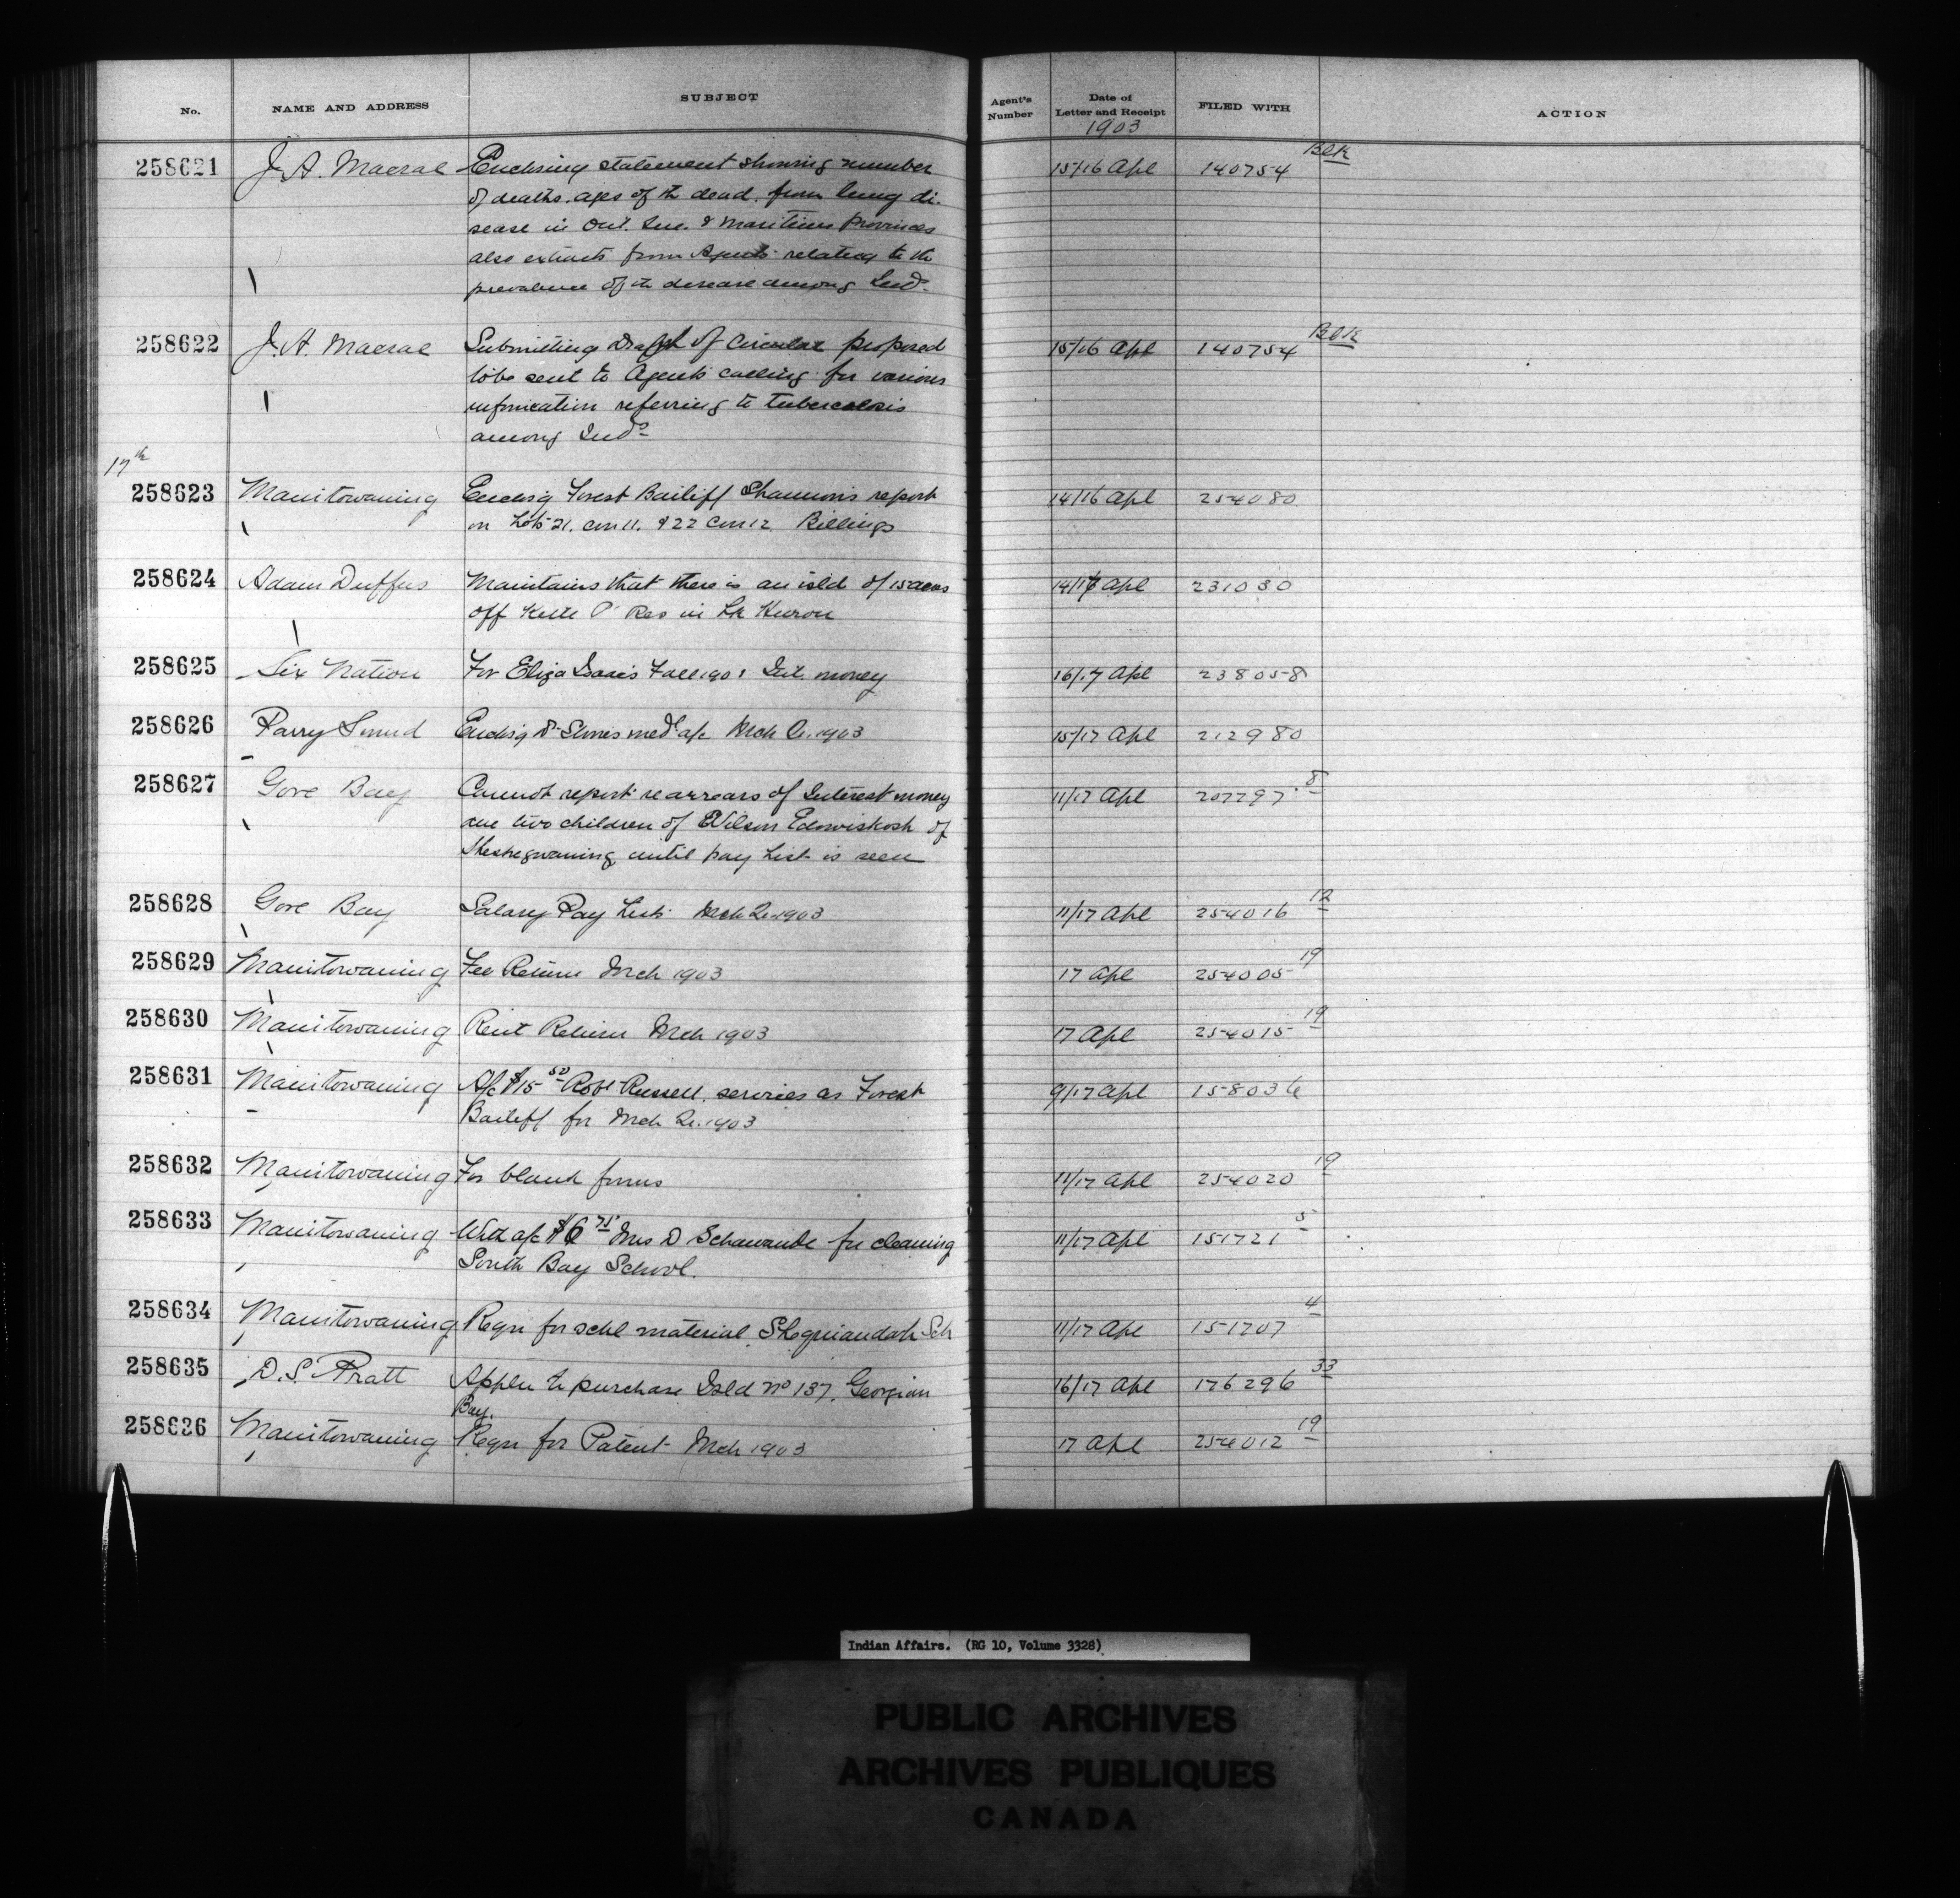 No. NAME AND ADDRESS SUBJECT Agent's Number Date of Letter and Receipt FILED WITH ACTION
1903
258621 J. A. Macrae Enclosing statement showing number 15/16 Apl 140754 Blk
of deaths, ages of th dead, from lung di-
sease in Ont. Que. & Maritime Provinces
also extracts from Agents relating to the
prevalence of th disease among Inds.
258622 J. A. Macrae Submitting draft of circular proposed 15/16 Apl 140754 Blk
to be sent to Agents calling for various
information referring to tuberculosis
among Inds
17th
258623 Manitowaning Enclosg Forest Bailiff Shannon's report 14/16 Apl 254080
on Lots 21. con 11. & 22 Con 12 Billings
258624 Adam Duffus Maintains that there is an isld of 15 acres 14/16 Apl 231030
off Kettle Pt Res in Lk Huron
258625 Six Nation For Eliza Isaac's Fall 1901 Int. money 16/17 Apl 238058
258626 Parry Sound Enclosg Dr medl a/c Mch Qr. 1903 15/17 Apl 212980
258627 Gore Bay Cannot report re arrears of Interest money 11/17 Apl 207797 8
due two children of Wilson Edowiskosh of
Sheshegwaning until pay List is seen
258628 Gore Bay Salary Pay Lists Mch Qr 1903 11/17 Apl 254016 12
258629 Manitowaning Fee Return Mch 1903 17 Apl 254005 19
258630 Manitowaning Rent Return Mch 1903 17 Apl 254015 19
258631 Manitowaning A/c $15 50 Robt Russell, services as Forest 9/17 Apl 158036
Bailiff for Mch Qr. 1903
258632 Manitowaning For blank forms 11/17 Apl 254020 19
258633 Manitowaning With a/c $6 75 Mrs D for cleaning 11/17 Apl 151721 5
South Bay School.
258634 Manitowaning Reqn for schl material Sheguiandah Sch 11/17 Apl 151707 4
258635 D. S. Pratt Applcn to purchase Isld No 137, Georgian 16/17 Apl 176296 33
Bay.
258636 Manitowaning Reqn for Patent Mch 1903 17 Apl 254012 19
Indian Affairs. (RG 10, Volume 3328)
PUBLIC ARCHIVES
ARCHIVES PUBLIQUES
CANADA